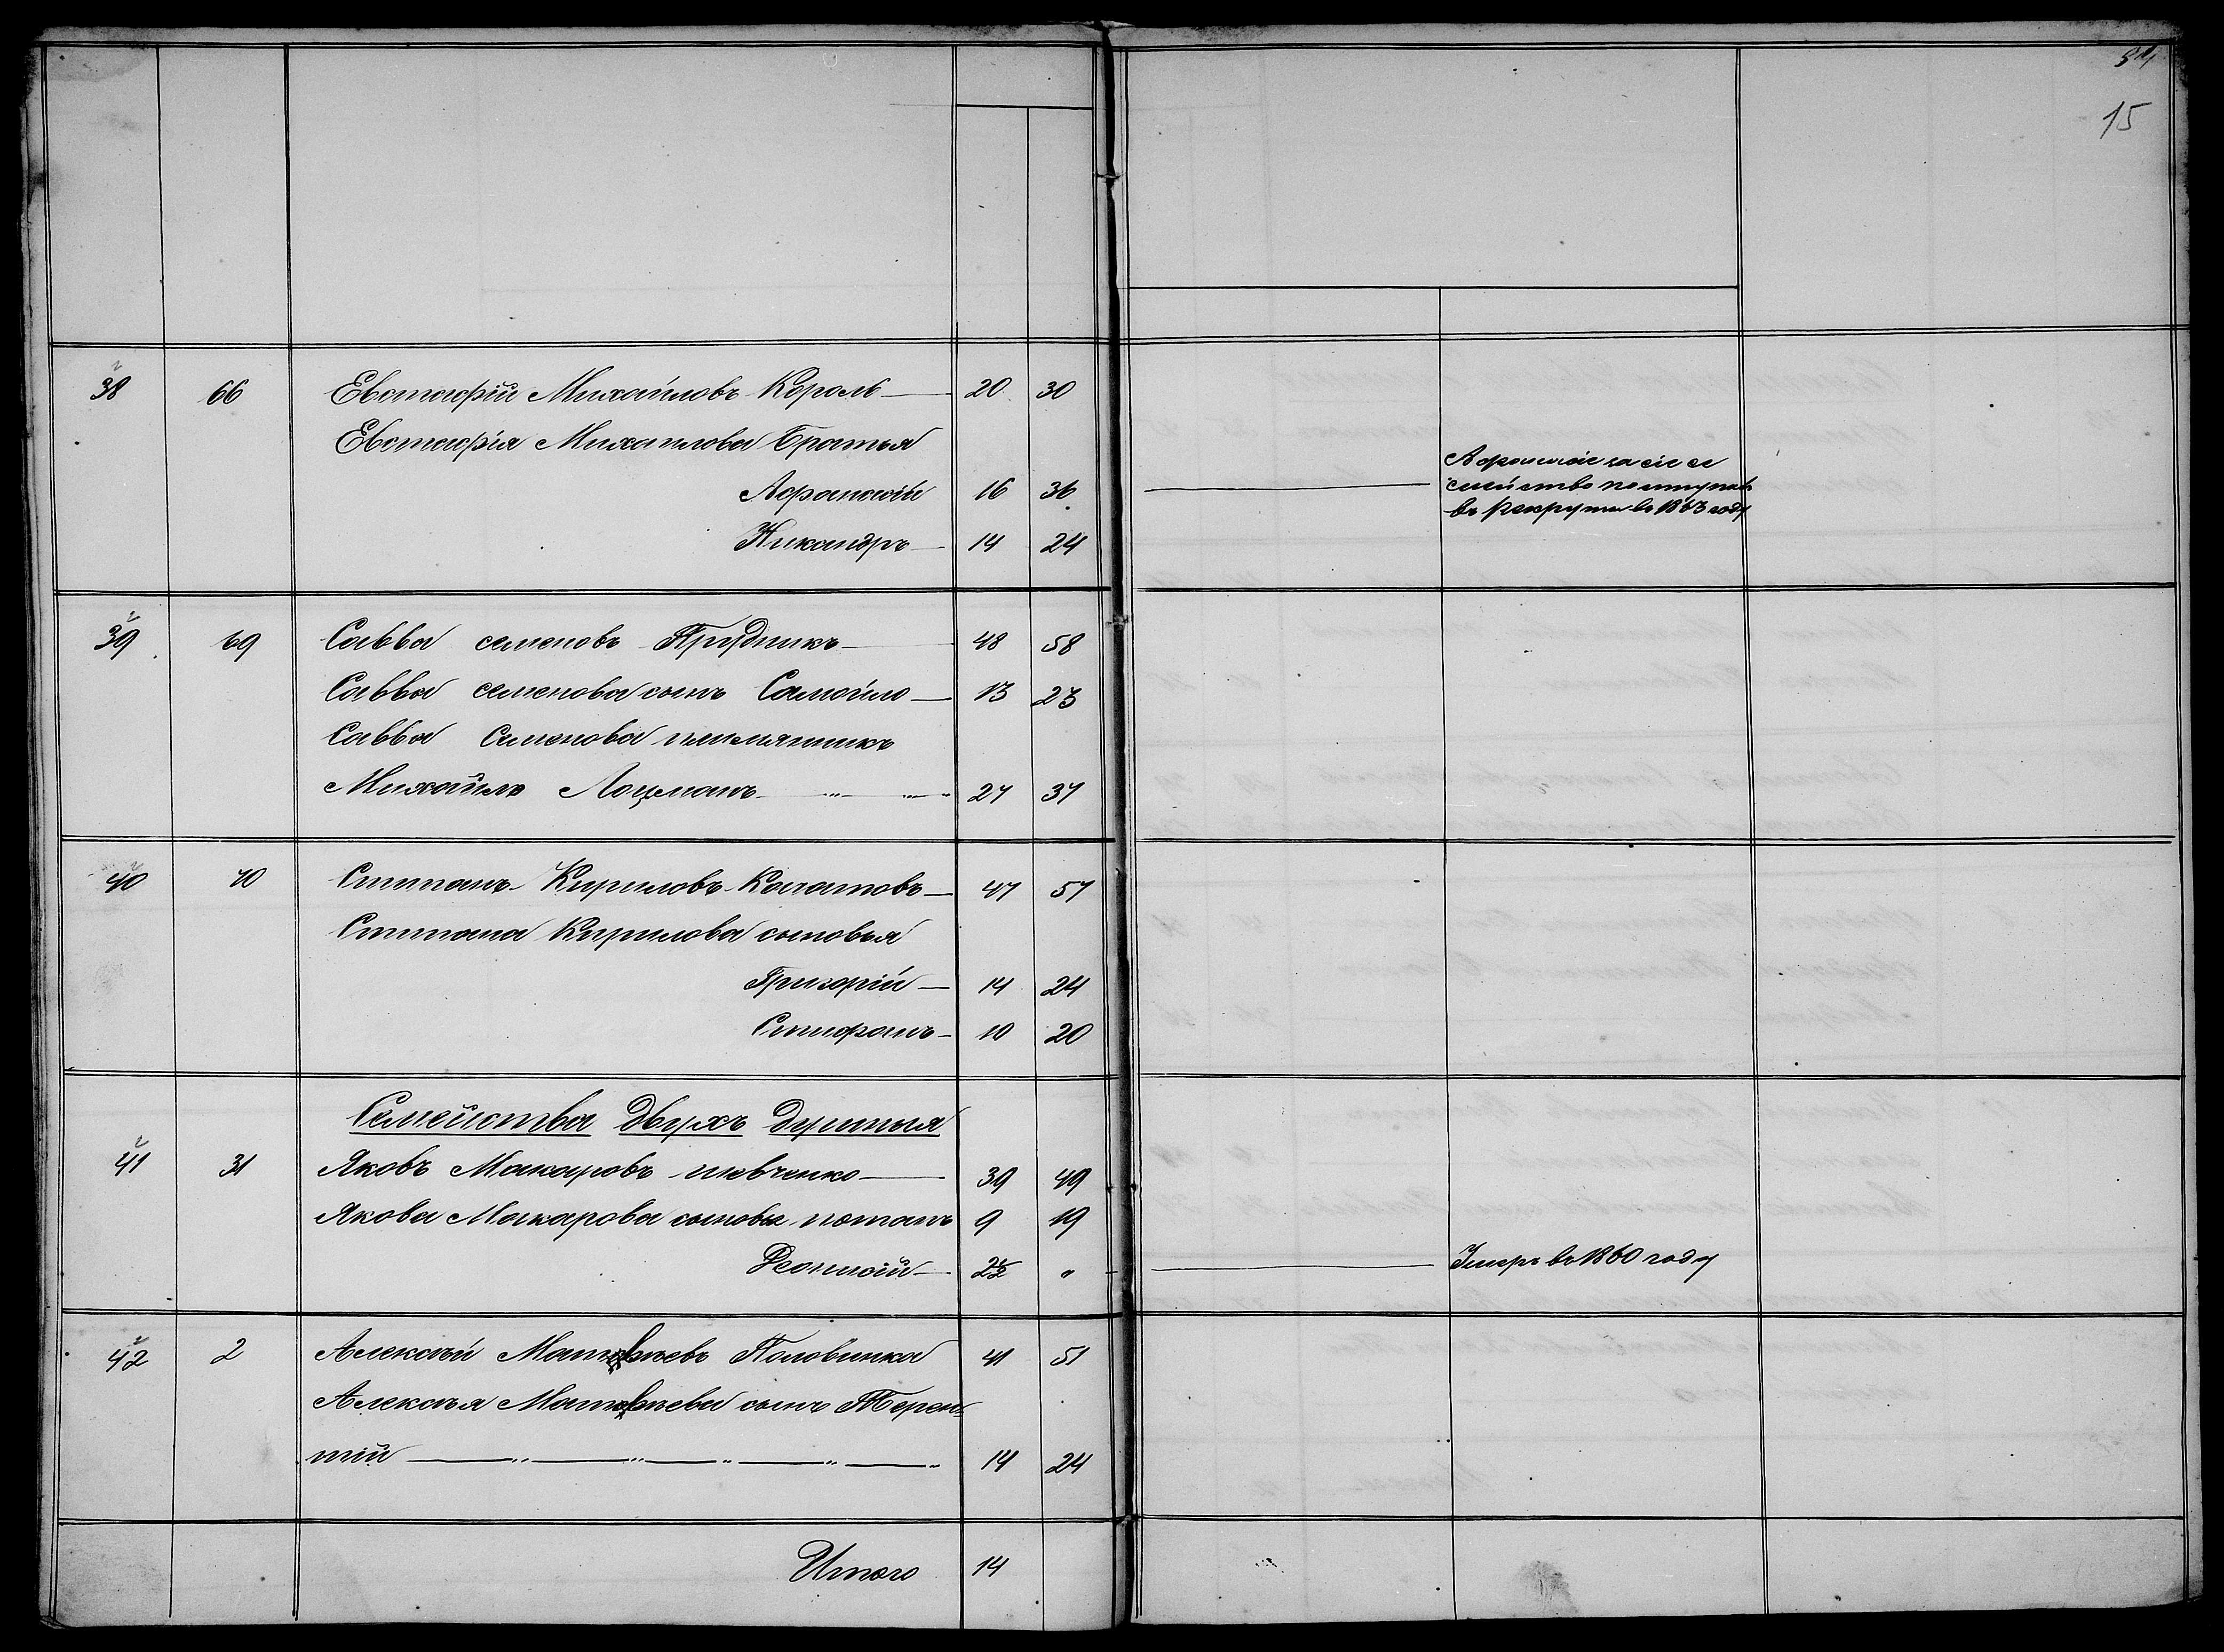 15
38 66 Евстафій Михайловъ Король 20 30
Евстафія Михаилова братья
Афанасій 16 36
Афанасій за сіе се
семейство поступилъ
въ рекруты въ 1863 году
Никандръ 14 24
39 69 Савва семеновъ Прудникъ 48 58
Савва семенова сынъ Самойло 13 23
Савва Семенова племянникъ
Михайло Лоцманъ 27 37
40 70 Степанъ Кириловъ 47 57
Степана Кирилова сыновья
Григорій 14 24
Стефанъ 10 20
Семейства двухъ душныя
41 31 Яковъ Макаровъ шевченко 39 49
Якова Макарова сыновья потапъ 9 19
Леонтій 2½ "
Умеръ въ 1860 году
42 2 Алексѣй Матвѣевъ Половинка 41 51
Алексѣя Матвѣева сынъ Терен=
тій 14 24
Итого 14